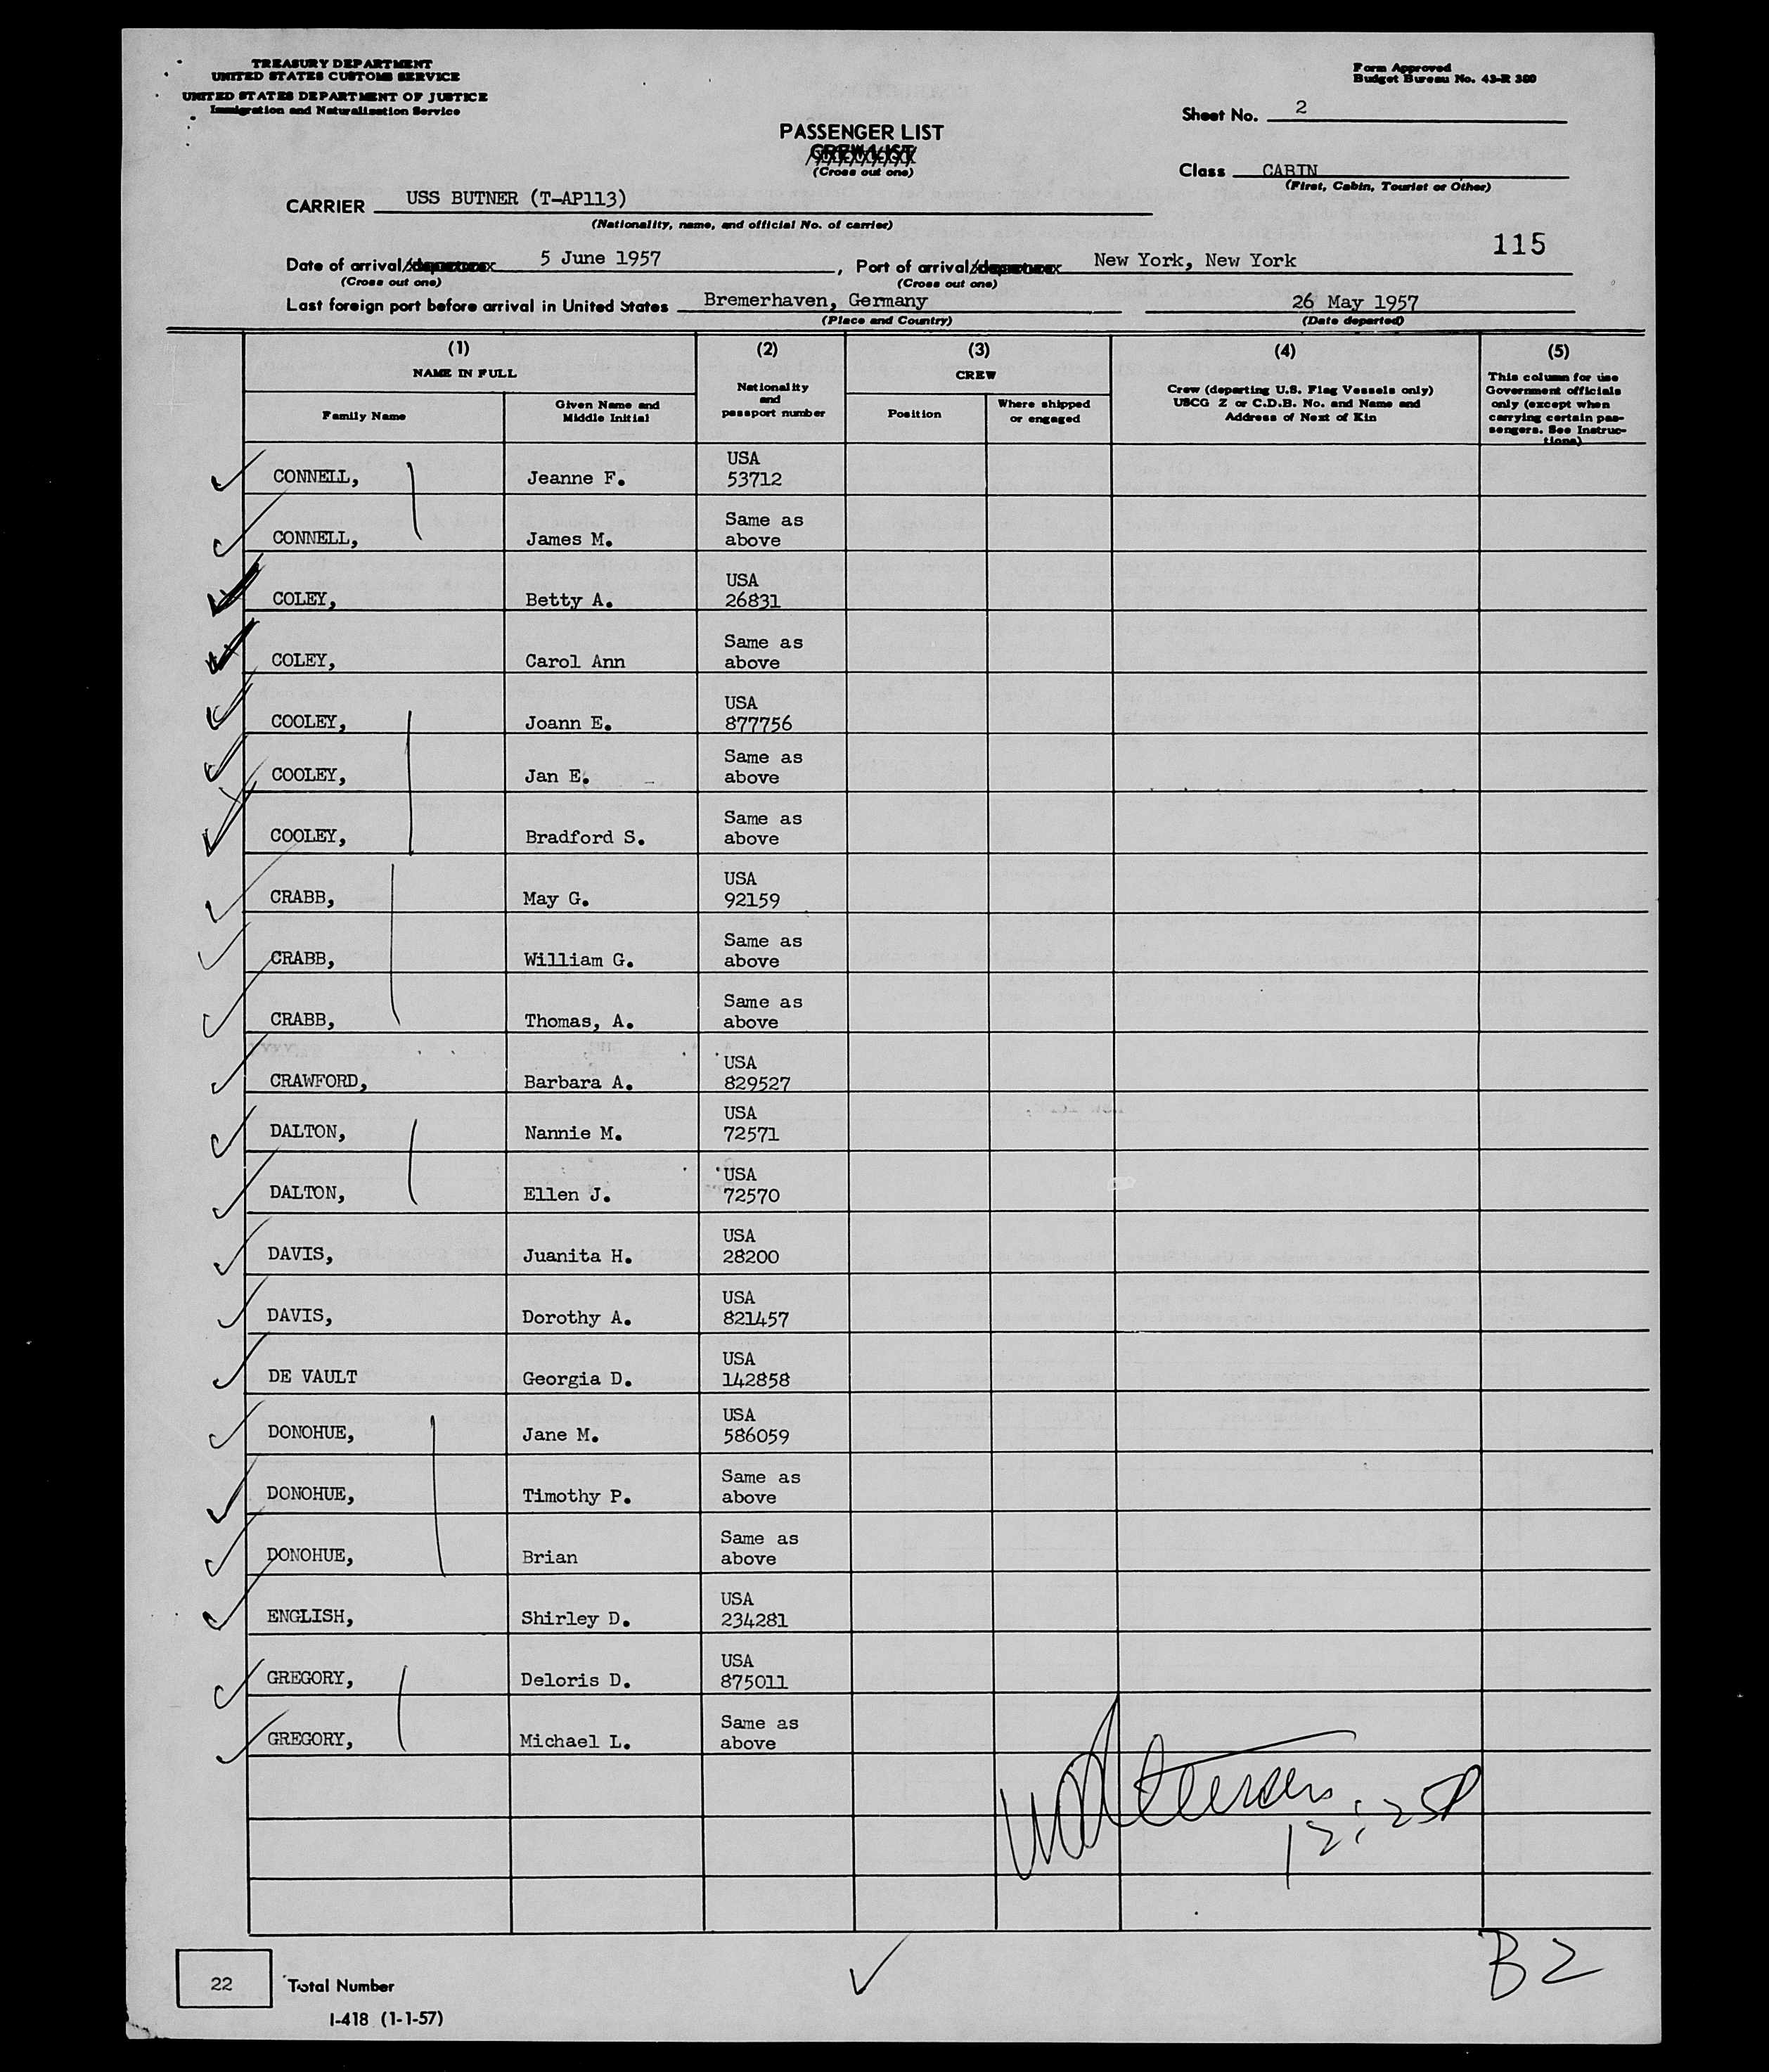 TREASURY DEPARTMENT
UNITED STATES CUSTOMS SERVICE
UNITED STATES DEPARTMENT OF JUSTICE
Immigration and Naturalization Service
Form Approved
Budget Bureau No. 43-R 380
Sheet No. 2
PASSENGER LIST
CREW LIST
(Cross out one)
Class CABIN
(First, Cabin, Tourist or Other)
CARRIER USS BUTNER (T-AP113)
(Nationality, name, and official No. of carrier)
115
Date of arrival/departure 5 June 1957, Port of arrival/departure New York, New York
(Cross out one) (Cross out one)
Last foreign port before arrival in United States Bremerhaven, Germany 26 May 1957
(Place and Country) (Date departed)
(1) (2) (3) (4) (5)
NAME IN FULL
Family Name
Given Name and
Middle Initial
Nationality
and
passport number
CREW
Position
Where shipped
or engaged
Crew (departing U.S. Flag Vessels only)
USCG Z or C.D.B. No. and Name and
Address of Next of Kin
This column for use
Government officials
only (except when
carrying certain pas-
sengers. See Instruc-
tions)
USA
CONNELL, Jeanne F. 53712
Same as
CONNELL, James M. above
USA
COLEY, Betty A. 26831
Same as
COLEY, Carol Ann above
USA
COOLEY, Joann E. 877756
Same as
COOLEY, Jan E. above
Same as
COOLEY, Bradford S. above
USA
CRABB, May G. 92159
Same as
CRABB, William G. above
Same as
CRABB, Thomas, A. above
USA
CRAWFORD, Barbara A. 829527
USA
DALTON, Nannie M. 72571
USA
DALTON, Ellen J. 72570
USA
DAVIS, Juanita H. 28200
USA
DAVIS, Dorothy A. 821457
USA
DE VAULT Georgia D. 142858
USA
DONOHUE, Jane M. 586059
Same as
DONOHUE, Timothy P. above
Same as
DONOHUE, Brian above
USA
ENGLISH, Shirley D. 234281
USA
GREGORY, Deloris D. 875011
Same as
GREGORY, Michael L. above
12:25P
B2
22 Total Number
I-418 (1-1-57)